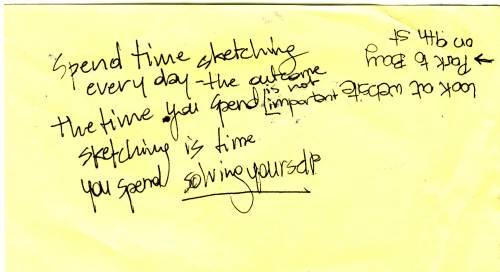 Spend time sketching
every day - the outcome
is not
important
the time you spend
sketching is time
you spend solving yourself
Look at website
→ Park to Bay
on 9th St